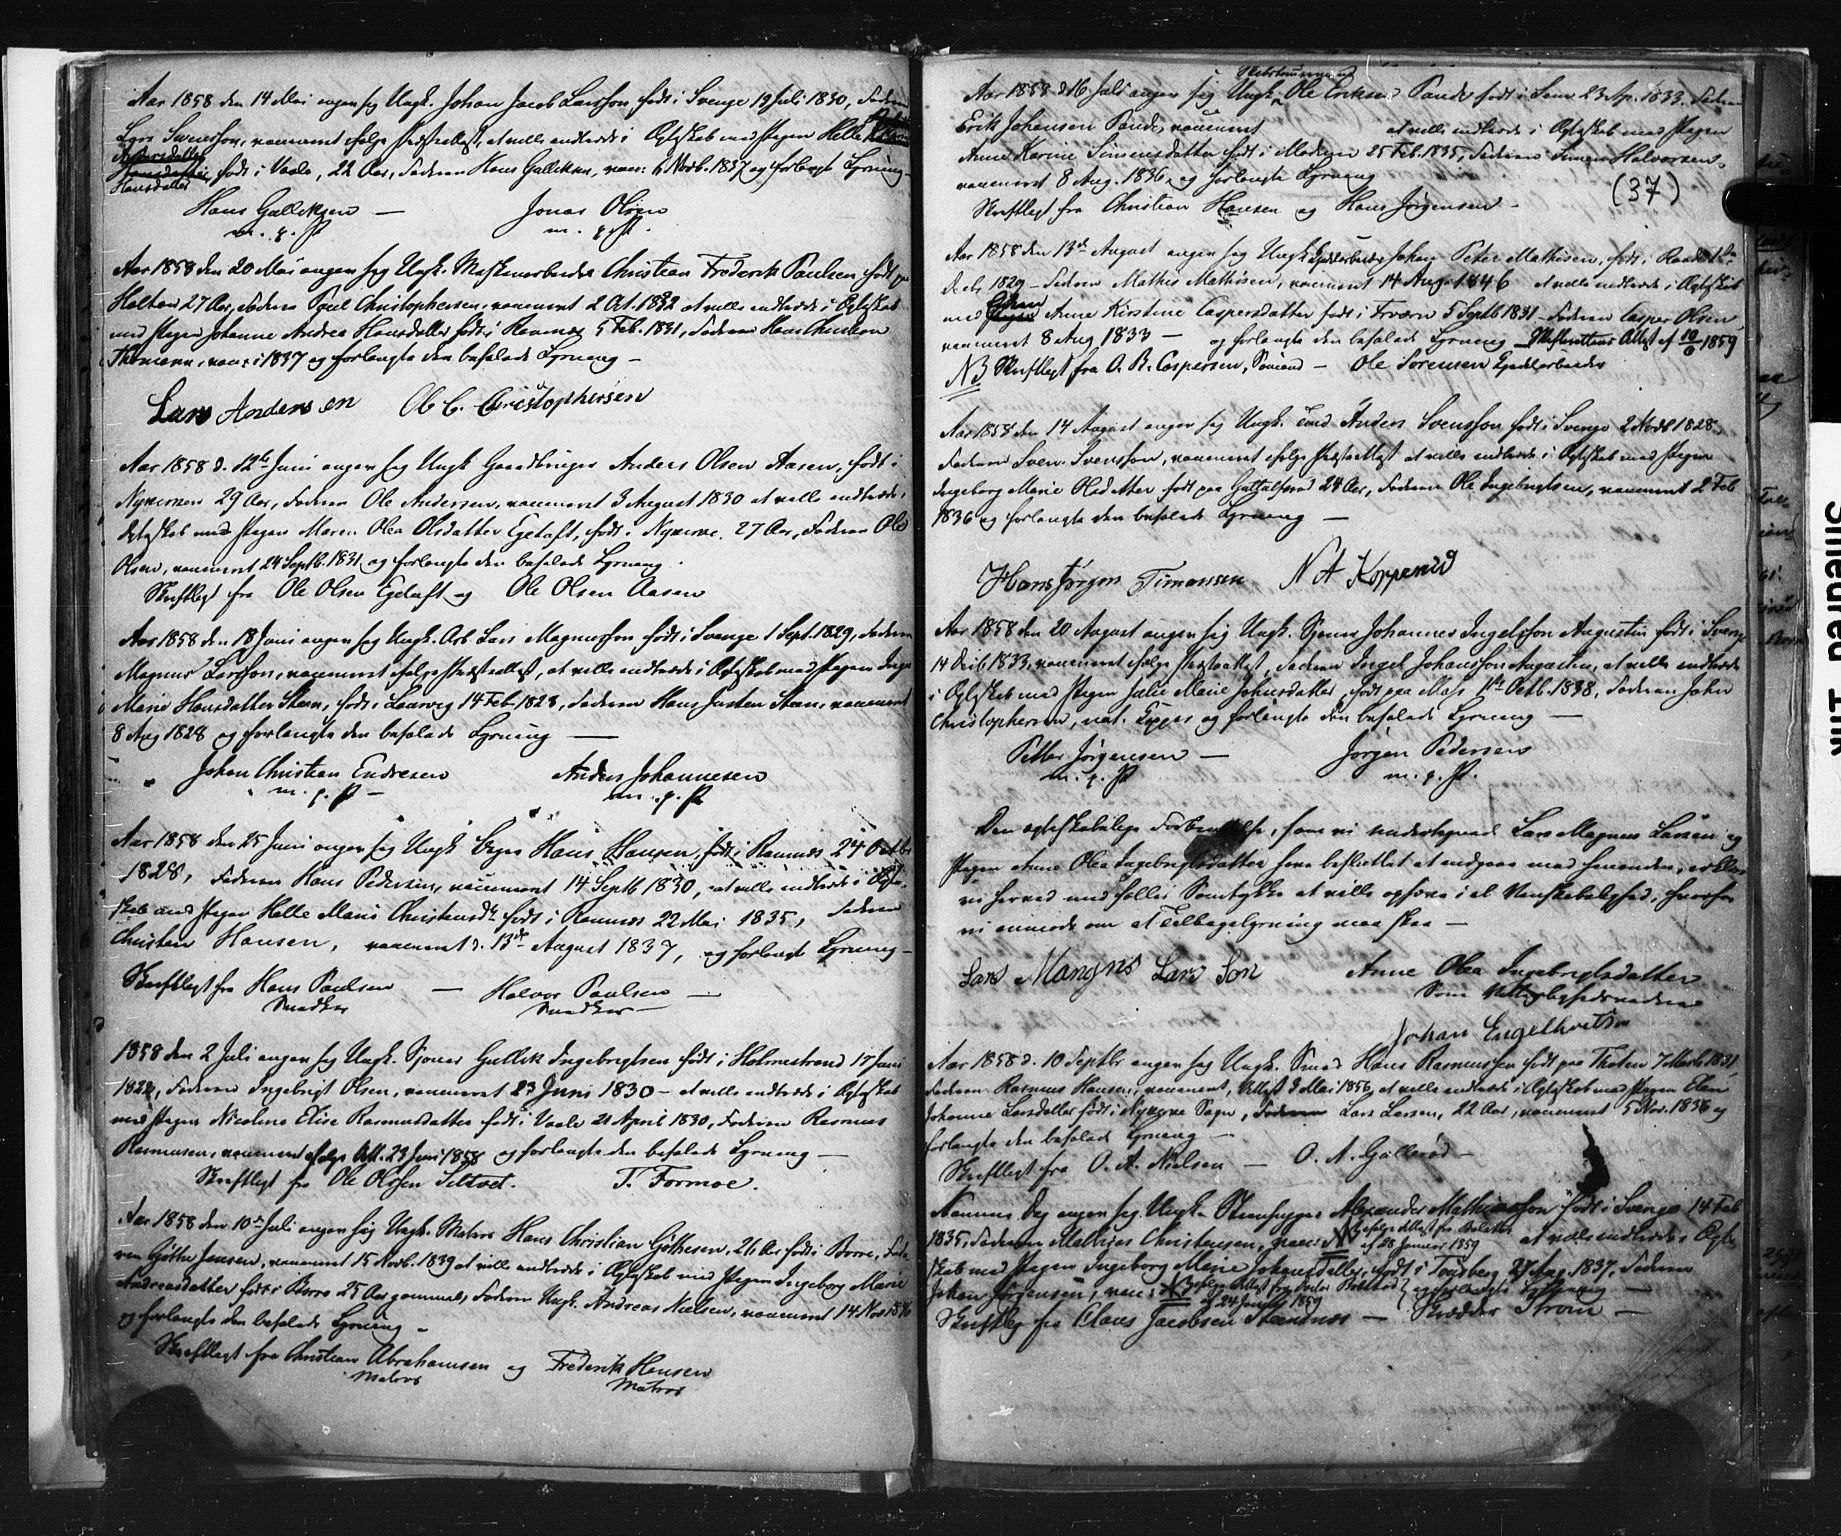 Aar 1858 den 14 Mai angav sig Ungk. Johan Jacob Larsson født i Sverige 19 Juli 1830, Faderen
Lars Svensson, vaccineret ifølge Præsteattest, at ville indtræde i Ægteskab med Pigen Helle
Hansdatter, født i Vaale, 22 Aar, Faderen Hans Gulliksen, vacc. 6 Novb. 1837 og forlangte Lysning
Hans Gulliksen — Jonas Olsen
m. p. P. m. p. P.
Aar 1858 den 20 Mai angav sig Ungk. Maskinarbeider Christian Frederik Paulsen født paa
Holton 27 Aar, Faderen Poul Christophersen, vaccineret 2 Oct. 1832 at ville indtræde i Ægteskab
med Pigen Johanne Andrea Hansdatter født i Ramnæs 5 Feb. 1831, Faderen Hans Christian
Thomesen, vacc. i 1837 og forlangte den befalede Lysning —
Lars Andersen Ole C. Christophersen
Aar 1858 d. 12te Juni angav sig Ungk. Gaardbruger Anders Olsen Aasen, født i
Nykirken 29 Aar, Faderen Ole Andersen, vaccineret 3 August 1830 at ville indtræde i
Ægteskab med Pigen Maren Olea Olsdatter Egetuft, født i Nykirke, 27 Aar, Faderen Ole
Olsen, vaccineret 24 Septb. 1831 og forlangte den befalede Lysning.
Skriftligt fra Ole Olsen Egetuft og Ole Olsen Aasen
Aar 1858 den 18 Juni angav sig Ungk. Arb. Lars Magnusson født i Sverige 1 Sept. 1829, Faderen
Magnus Larsson, vaccineret ifølge Præsteattest, at ville indtræde i Ægteskab med Pigen Inger
Marie Hansdatter Steen, født i Laurvig 14 Feb. 1828, Faderen Hans Justen Steen, vaccineret
8 Aug 1828 og forlangte den befalede Lysning —
Johan Christian Endresen Anders Johannesen
m. p. P. — m. p. P.
Aar 1858 den 25 Juni angav sig Ungk Hans Hansen, født i Ramnæs 24 Octbr
1828, Faderen Hans Pedersen, vaccineret 14 Septb 1830, at ville indtræde i Ægte-
skab med Pigen Helle Marie Christensdt. født i Ramnæs 22 Mai 1835, Faderen
Christen Hansen, vaccineret d. 13de August 1837, og forlangt Lysning —
Skriftligt fra Hans Paulsen — Halvor Paulsen —
Snedker Snedker —
1858 den 2 Juli angav sig Ungk. Skomr Gullik Ingebrigtsen født i Holmestrand 17 Juni
1828, Faderen Ingebrigt Olsen, vaccineret 23 Juni 1830 — at ville indtræde i Ægteskab
med Pigen Nicoline Elise Rasmusdatter født i Vaale 21 April 1830, Faderen Rasmus
Rasmusen, vaccineret ifølge Att. 23 Juni 1858 og forlangte den befalede Lysning —
Skriftligt fra Ole Olssen Siltvet. T. Formoe.
Aar 1858 den 10de Juli angav sig Ungk. Matros Hans Christian Göthesen, 26 Aar født i Borre, Fade-
ren Göthe Jensen, vaccineret 15 Novb. 1839 at ville indtræde i Ægteskab med Pigen Ingeborg Marie
Andreasdatter født i Borre 25 Aar gammel, Faderen Ungk. Andreas Nielsen, vaccineret 14 Nov. 1836
og forlangte den befalede Lysning —
Skriftligt fra Christian Abrahamsen og Frederik Hansen
Matros Matros
Aar 1858 d. 16 Juli angav sig Ungk. Ole Eriksen født i Sem 23 Ap. 1833. Faderen
Erik Johansen, vaccineret at ville indtræde i Ægteskab med Pigen
Anne Karine Simensdatter født i Modum 25 Feb. 1835, Faderen Simen Halvorsen,
vaccineret 8 Aug. 1836 og forlangte Lysning
(37)
Skriftligt fra Christian Hansen og Hans Jørgensen —
Aar 1858 den 13de August angav sig Ungk. Johan Peter Mathisen, født i
Decbr 1829 — Faderen Mathis Mathisen, vaccineret 14 Aug. 1846 at ville indtræde i Ægteskab
med Anne Kirstine Caspersdatter født i 5 Septb 1831 — Faderen Casper Olsen,
vaccineret 8 Aug 1833 — og forlangte den befalede Lysning Attest af 10/6 1859
NB Skriftligt fra O. R. Caspersen, Sömand — Ole Sörensen
Aar 1858 den 14 August angav sig Ungk. Anders Svensson født i Sverige 2 Novb 1828,
Faderen Sven Svensson, vaccineret ifølge Præsteattest at ville indtræde i Ægteskab med Pigen
Ingeborg Marie Olsdatter født paa 24 Aar, Faderen Ole Ingebrigtsen, vaccineret 2 Feb
1836 og forlangte den befalede Lysning —
Hans Jörgen Timansen N A Kopperud
Aar 1858 den 20 August angav sig Ungk. Johannes Ingelsson Augustin født i Sverige
14 Decb 1833, vaccineret ifølge Præsteattest, Faderen Ingel Johansson Augustin, at ville indtræde
i Ægteskab med Pigen Julie Marie Johnsdatter, født paa Moss 1te Octb. 1838, Faderen John
Christophersen, nat. Kopper og forlangte den befalede Lysning —
Petter Jörgensen — Jörgen Pedersen
m. p. P. m. p. P.
Den ægteskabelige Forbindelse, som vi undertegnede Lars Magnus Larsen og
Pigen Anne Olea Ingebrigtsdatter have besluttet at indgaae med hinanden, erklære
vi herved med fælles Samtykke at ville ophæve i al Venskabelighed, hvorfor
vi anmode om at Tilbagelysning maa skee —
Lars Mangns Lars Son Anne Olea Ingebrigtsdatter
Som Vitterlighedsvidne
Johan Engelhvitsn
Aar 1858 d. 10 Septbr angav sig Ungk. Smed Hans Rasmussen født paa Thoten 7 Marts 1831,
Faderen Rasmus Hansen, vaccineret, Attest 9 Mai 1856, at ville indtræde i Ægteskab med Pigen Eleni
Johanne Larsdatter født i Nykirke Sogn, Faderen Lars Larsen, 22 Aar, vaccineret 5 Nov. 1836 og
forlangte den befalede Lysning —
Skriftligt fra O. A. Nielsen — O. A. Gullerød —
Samme Dag angav sig Ungk. Steenhugger Alexander Mathiasson født i Sverige 14 Feb
1835, Faderen Mathias Christensen, vacc: ifølge Attest fra af 28 Januar 1859 at ville indtræde i Ægte-
skab med Pigen Ingeborg Marie Johansdatter, født i Tønsberg 27 Aug. 1837, Faderen
Johan Jørgensen, vacc: ifølge Attest fra af 24 Januar 1859 og forlangte Lysning —
Skriftlig fra Claus Jacobsen — Skrædder Strøm —
Smeared Ink